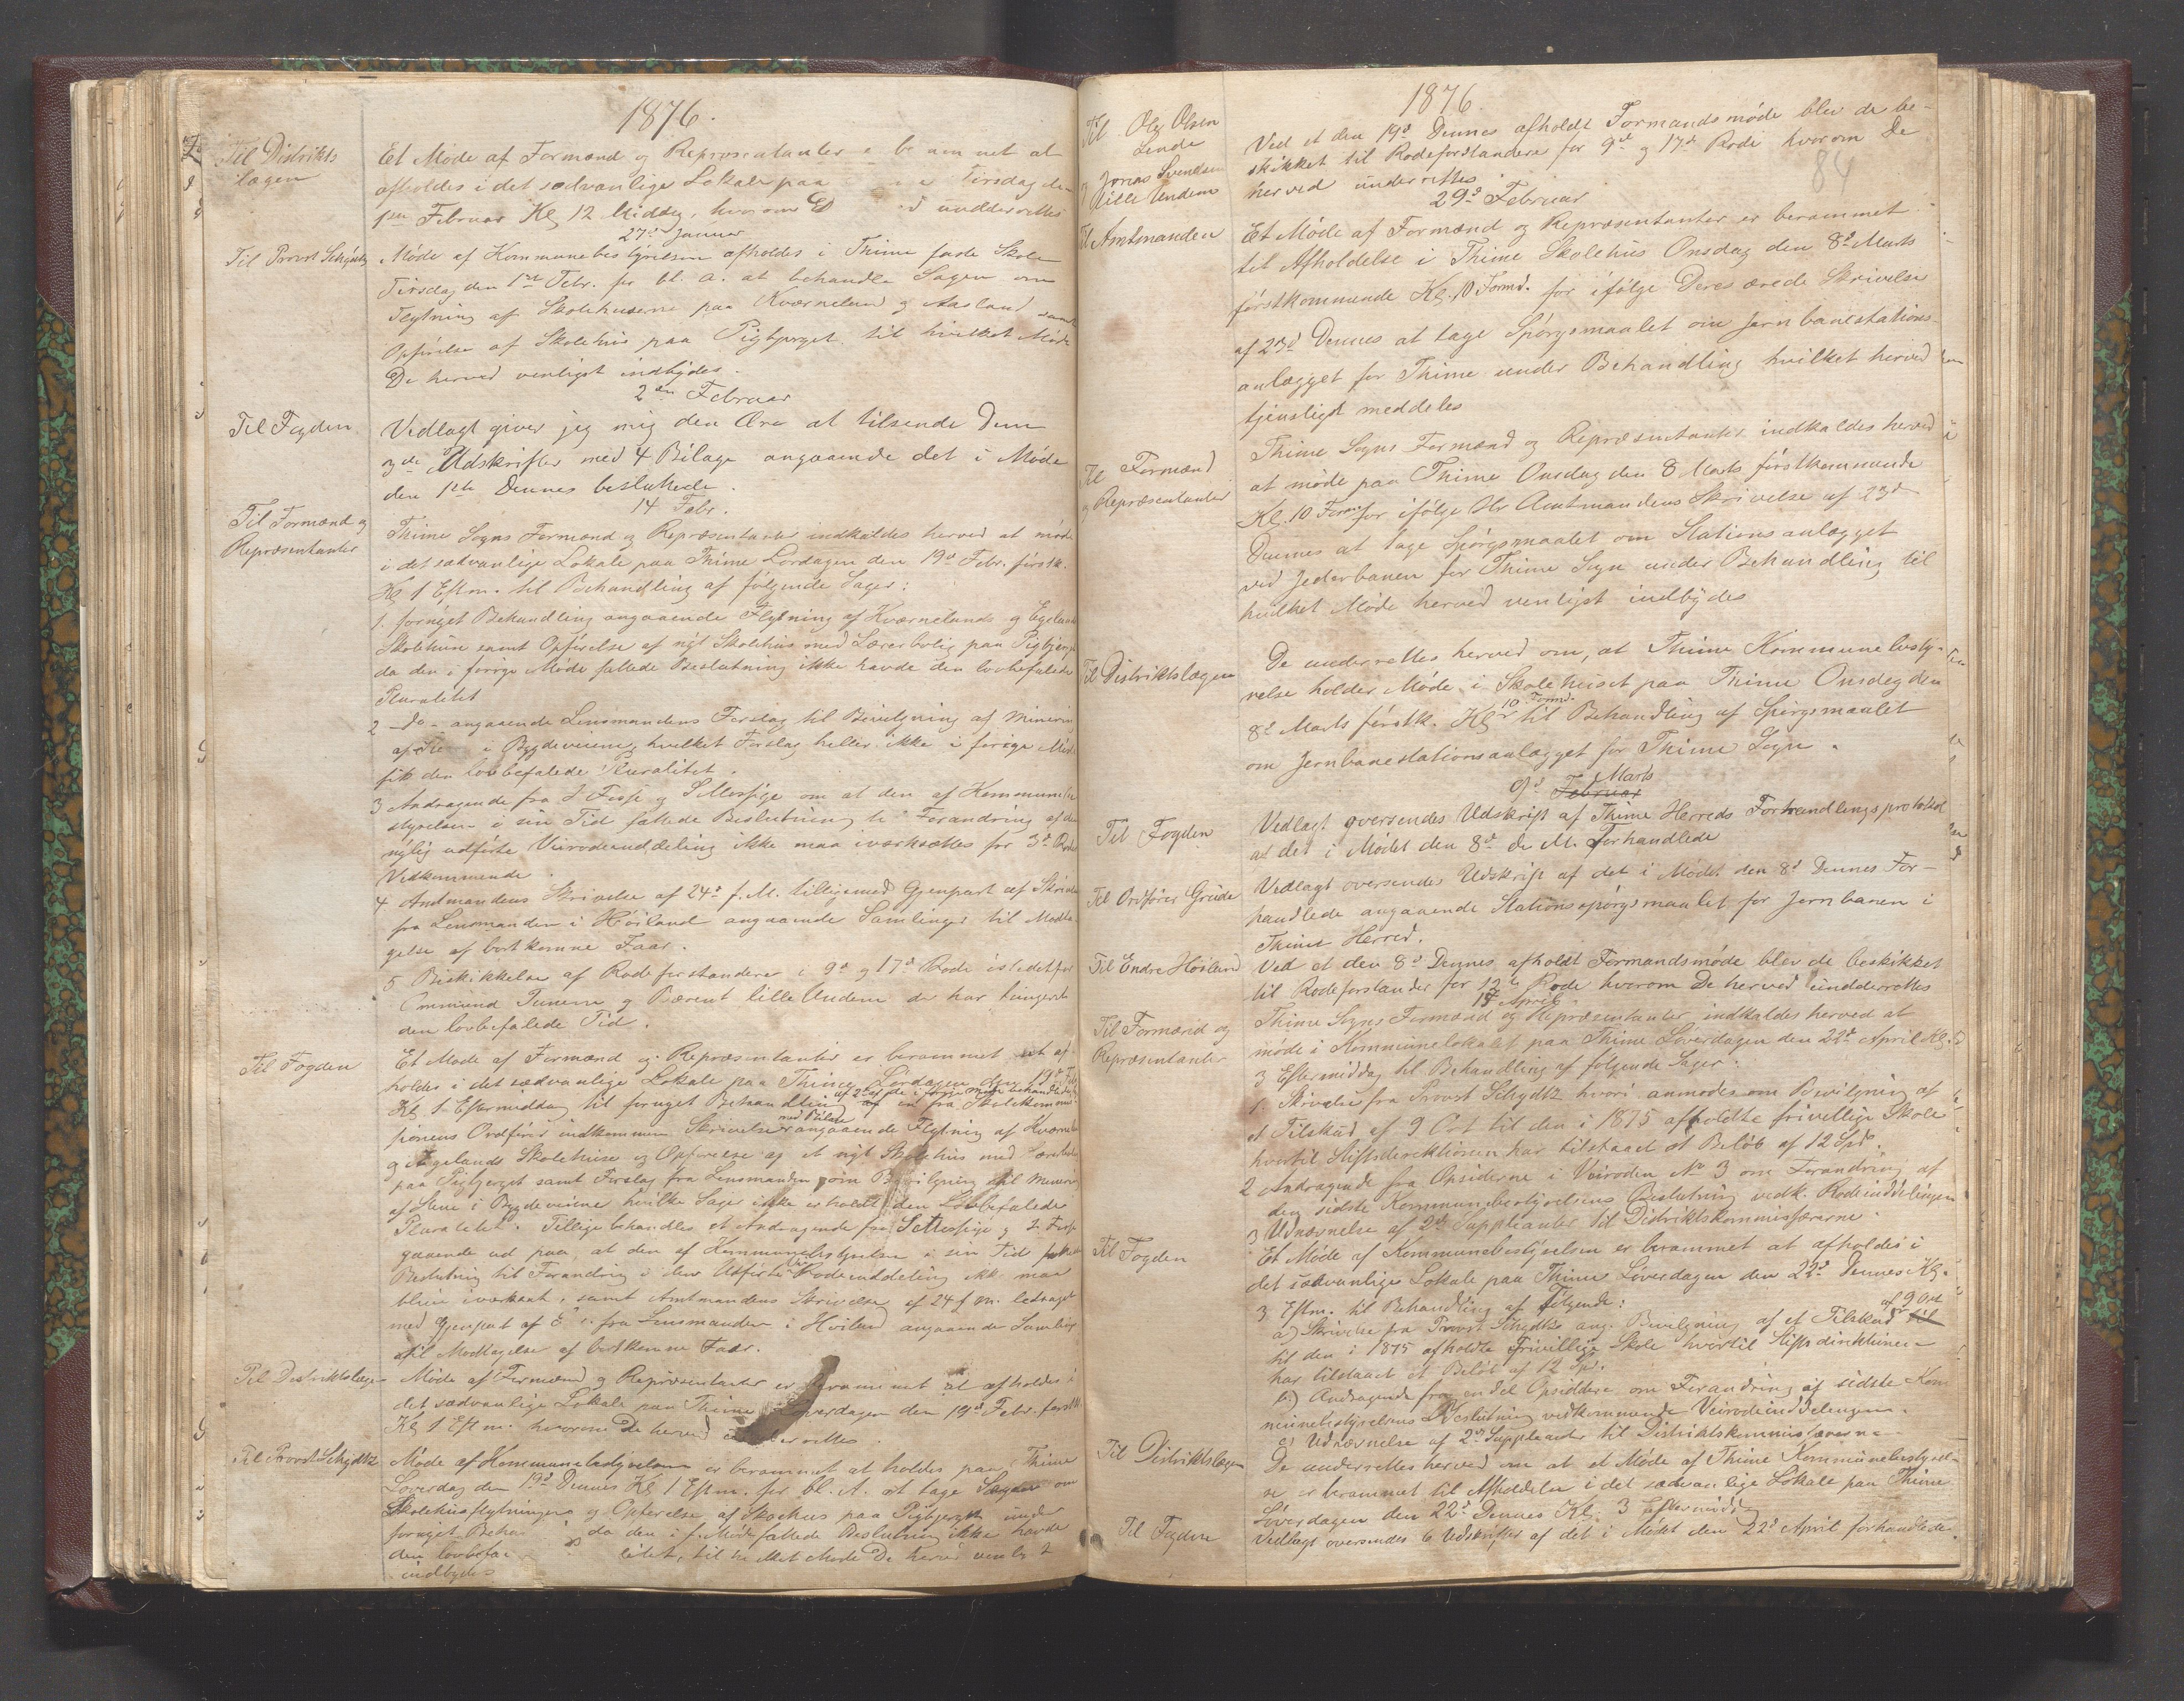 1876.
Til Distrikts
lægen
Et Møde af Formænd og Repræsentanter at
afholdes i det sædvanlige Lokale paa Tirsdag den
1ste Februar Kl 12 Middag, hvorom underrettes
27de Januar
Til Provst Schydtz
Møde af Kommunebestyrelsen afholdes i Thime faste Skole
Tirsdag den 1ste Febr. for bl. a. at behandle Sagen om
Flytning af Skolehuserne paa Kværneland og Aasland samt
Opførelse af Skolehus paa Pigbjerget til hvilket Møde
De herved venligst indbydes.
2den Februar
Til Fogden
Vedlagt giver jeg mig den Ære at tilsende Dem
3de Udskrifter med 4 Bilage angaaende det i Møde
den 1ste Dennes besluttede.
14 Febr.
Til Formænd og
Repræsentanter
Thime Sogns Formænd og Repræsentanter indkaldes herved at møde
i det sædvanlige Lokale paa Thime Lørdagen den 19de Febr. førstk.
Kl 1 Eftm. til Behandling af følgende Sager:
1. fornyet Behandling angaaende Flytning af Kværnelands og Egelands
Skolehuse samt Opførelse af nyt Skolehus med Lærerbolig paa Pigbjerget
da den i forrige Møde fattede Beslutning ikke havde den lovbefalede
Pluralitet
2 - do - angaaende Lensmandens Forslag til Bevilgning af Minering
af i Bygdeveiene, hvilket Forslag heller ikke i forrige Møde
fik den lovbefalede Pluralitet.
3 Andragende fra I Fosse og S Mossige om at den af Kommunebe
styrelsen i sin Tid fattede Beslutning til Forandring af den
nylig udførte Veirodeinddeling ikke maa iværksættes for 3de Rodes
Vedkommende.
4 Amtmandens Skrivelse af 24de f. M. tilligemed Gjenpart af Skrivelse
fra Lensmanden i Høiland angaaende Samlinger til Modta
gelse af bortkomne Faar.
5 Beskikkelse af Rodeforstandere i 9de og 17de Rode istedetfor
Ommund Tunem og Bærent lille Undem der har fungeret
den lovbefalede Tid.
Til Fogden
Et Møde af Formænd og Repræsentanter er berammet at af
holdes i det sædvanlige Lokale paa Thime Lørdagen den 19de Feb
Kl 1 Eftermiddag til fornyet Behandling af en fra Skolekommis
sionens Ordfører indkommen Skrivelse angaaende Flytning af Kværne
og Egelands Skolehuse og Opførelse af et nyt Skolehus med Lærerbolig
paa Pigbjerget samt Forslag fra Lensmanden om Bevilgning til Minering
af Stene i Bygdeveiene hvilke Sage ikke erholdt den Lovbefalede
Pluralitet. Tillige behandles et Andragende fra S Mossige og I Fosse
gaaende ud paa at den af Kommunebestyrelsen i sin Tid fattede
Beslutning til Forandring i den Udførte Rodeinddeling ikke maa
blive iværksat, samt Amtmandens Skrivelse af 24 f. M. ledsaget
med Gjenpart af fra Lensmanden i Høiland angaaende Samlinger
til Modtagelse af bortkomne Faar.
Til Distriktslægen
Møde af Formænd og Repræsentanter er berammet at afholdes i
det sædvanlige Lokale paa Thime Løverdagen den 19de Febr. førstk.
Kl 1 Eftm. hvorom De herved underrettes.
Til Provst Schydtz
Møde af Kommunebestyrelsen er berammet at holdes paa Thime
Løverdag den 19de Dennes Kl 1 Eftm. for bl. A. at tage Sagen om
Skolehusflytningen og Opførelse af Skolehus paa Pigbjerget under
fornyet Beha da den i f. Møde fattede Beslutning ikke havde
den lovbefa litet, til hvilket Møde De herved venligst
indbydes
1876.
84
Til Ole Olsen
Lende
og Jonas Svendsen
Lille Undem
Ved et den 19de Dennes afholdt Formandsmøde blev de be-
skikket til Rodeforstandere for 9de og 17de Rode hvorom De
herved underrettes.
29de Februar
Til Amtmanden
Et Møde af Formænd og Repræsentanter er berammet
til Afholdelse i Thime Skolehus Onsdag den 8de Marts
førstkommende Kl. 10 Formd. for ifølge Deres ærede Skrivelse
af 23de Dennes at tage Spørgsmaalet om Jernbanestations-
anlægget for Thime under Behandling hvilket herved
tjenstligst meddeles
Til Formænd
og Repræsentanter
Thime Sogns Formænd og Repræsentanter indkaldes herved
at møde paa Thime Onsdag den 8 Marts førstkommende
Kl. 10 Formd for ifølge Hr Amtmandens Skrivelse af 23de
Dennes at tage Spørgsmaalet om Stationsanlægget
ved Jederbanen for Thime Sogn under Behandling til
hvilket Møde herved venligst indbydes
Til Distriktslægen
De underrettes herved om, at Thime Kommunebesty-
relse holder Møde i Skolehuset paa Thime Onsdag den
8de Marts førstk. Kl 10 Formd. til Behandling af Spørgsmaalet
om Jernbanestationsanlægget for Thime Sogn.
9de Februar Marts
Til Fogden
Vedlagt oversendes Udskrift af Thime Herreds Forhandlingsprotokol
at det i Mødet den 8de d. M. Forhandlede
Til Ordfører Grude
Vedlagt oversendes Udskrift af det i Mødet den 8de Dennes For-
handlede angaaende Stationsspørgsmaalet for Jernbanen i
Thime Herred.
Til Endre Høiland
Ved et den 8de Dennes afholdt Formandsmøde blev de beskikket
til Rodeforstander for 12te Rode hvorom De herved underrettes
17 April
Til Formænd og
Repræsentanter
Thime Sogns Formænd og Repræsentanter indkaldes herved at
møde i Kommunelokalet paa Thime Løverdagen den 22de April Kl.
3 Eftermiddag til Behandling af følgende Sager:
1. Skrivelse fra Provst Schydtz hvori anmodes om Bevilgning af
et Tilskud af 9 Ort til den i 1875 afholdte frivillige Skole
hvortil Stiftsdirektionen har tilstaaet et Beløb af 12 Spd.
2 Andragende fra Opsiderne i Veiroden No 3 om Forandring af
den sidste Kommunebestyrelsens Beslutning vedk. Rodeinddelingen
3 Udnævnelse af 2de Suppleanter til Distriktskommissærerne.
Til Fogden
Et Møde af Kommunebestyrelsen er berammet at afholdes i
det sædvanlige Lokale paa Thime Løverdagen den 22de Dennes Kl.
3 Eftm. til Behandling af Følgende:
a) Skrivelse fra Provst Schydtz ang. Bevilgning af et Tilskud af 9 Ort
til den i 1875 afholdte Frivillige Skole hvortil Stiftsdirektionen
har tilstaaet et Beløb af 12 Spd.
b) Andragende fra en Del Opsiddere om Forandring af sidste Kom
munebestyrelsens Beslutning vedkommende Veirodeinddelingen.
c) Udnævnelse af 2de Suppleanter til Distriktskommissærerne
Til Distriktslægen
De underrettes herved om at et Møde af Thime Kommunebestyrel-
se er berammet til Afholdelse i det sædvanlige Lokale paa Thime
Løverdagen den 22de Dennes Kl. 3 Eftermiddag
Til Fogden
Vedlagt oversendes 6 Udskrifter af det i Mødet den 22de April forhandlede.